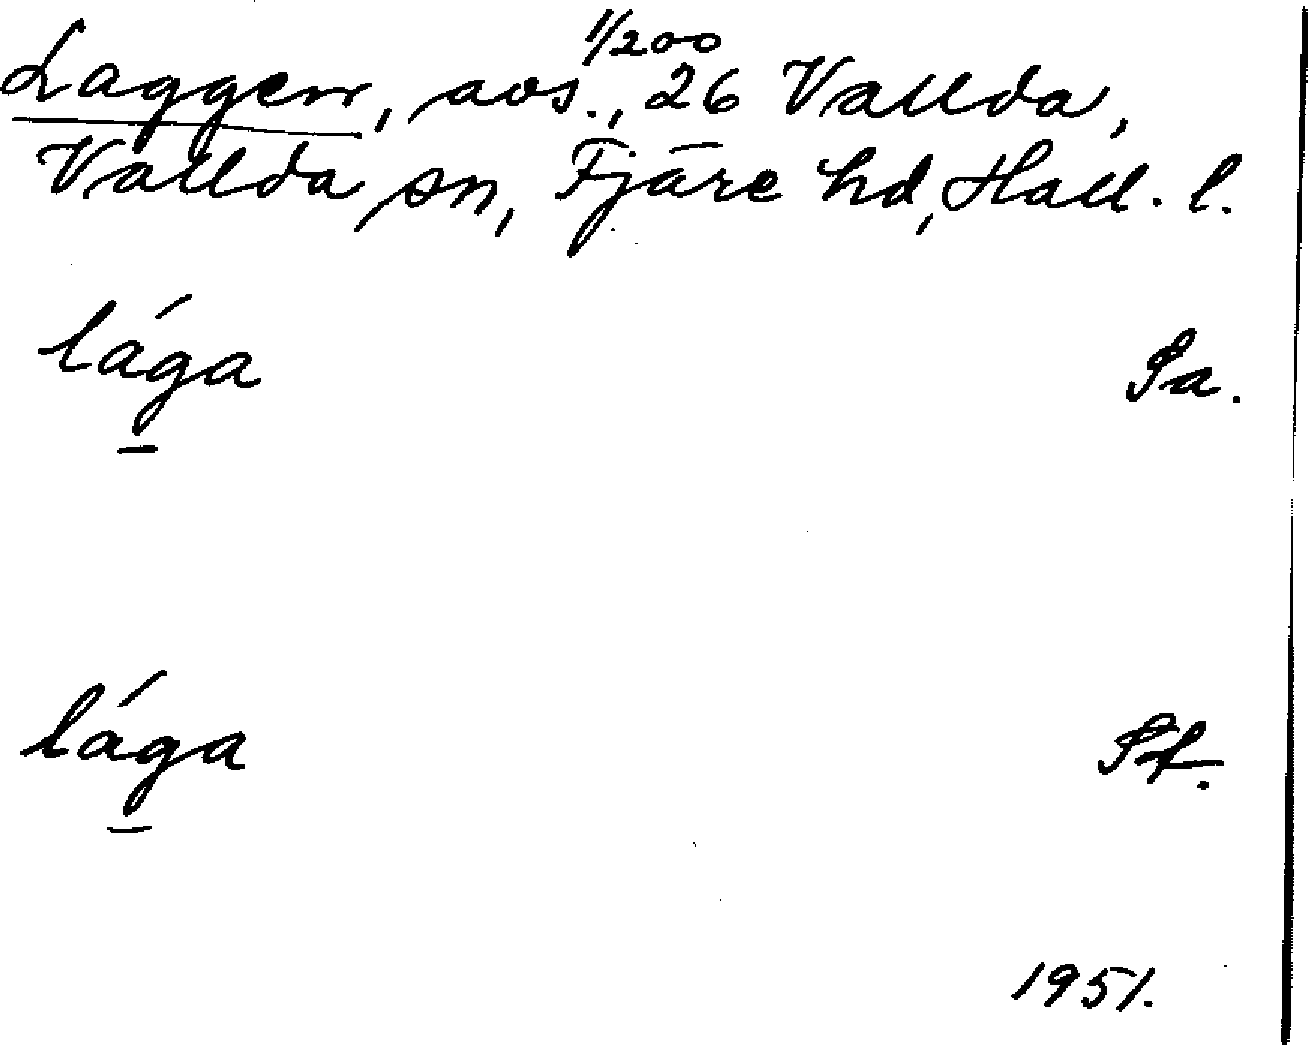 1/200
Laggen, avs., 26 Vallda,
Vallda sn, Fjäre hd, Hall. l.
lága Pa.
lága Pf.
1951.